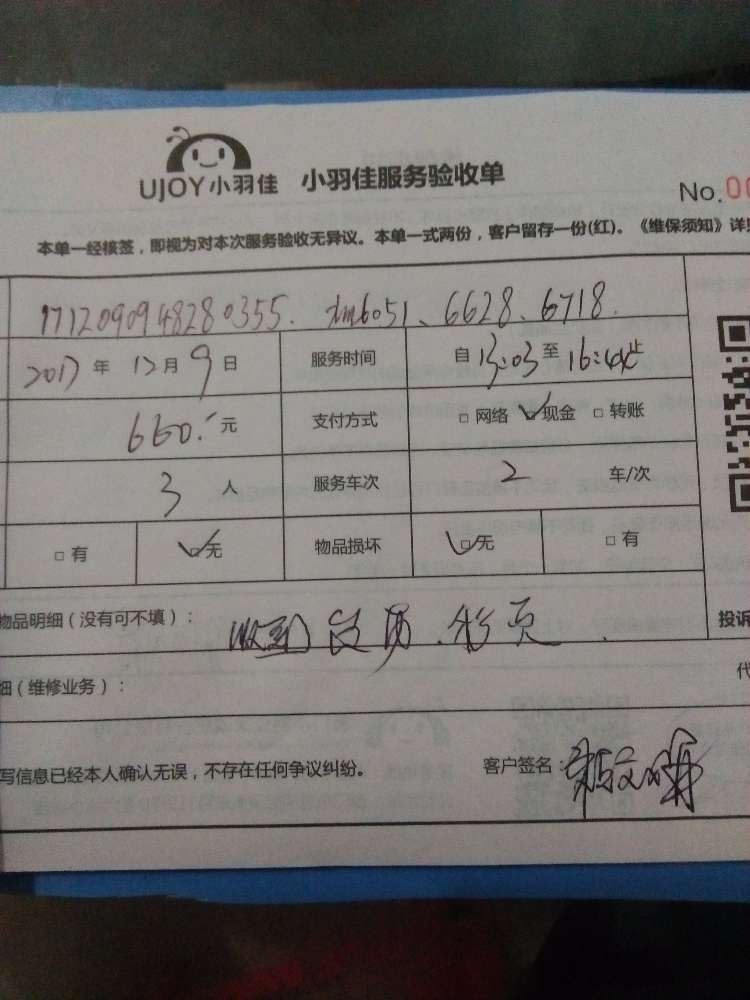 UJOY小羽佳 小羽佳服务验收单
No.00
本单一经核签，即视为对本次服务验收无异议。本单一式两份，客户留存一份(红)。《维保须知》详见
1712090948280355. xm6051、6628、6718.
2017年 12月 9日 服务时间 自13:03至16:44止
660.-元 支付方式 □网络 □现金 □转账
3 人 服务车次 2 车/次
□有 □无 物品损坏 □无 □有
物品明细（没有可不填）： 收到 彩页.
投诉
细（维修业务）：
代
写信息已经本人确认无误，不存在任何争议纠纷。 客户签名：